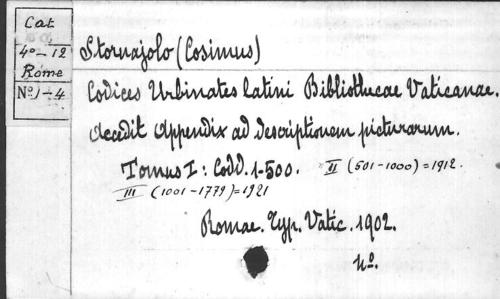 Cat
4°-12
Rome
N° 1-4
Stornajolo (Cosimus)
Codices Urbinates latini Bibliothecae Vaticanae.
Accedit Appendix ad descriptionem picturarum.
Tomus I: Codd. 1-500. II (501-1000) = 1912.
III (1001-1779) = 1921
Romae. Typ. Vatic. 1902.
4°.